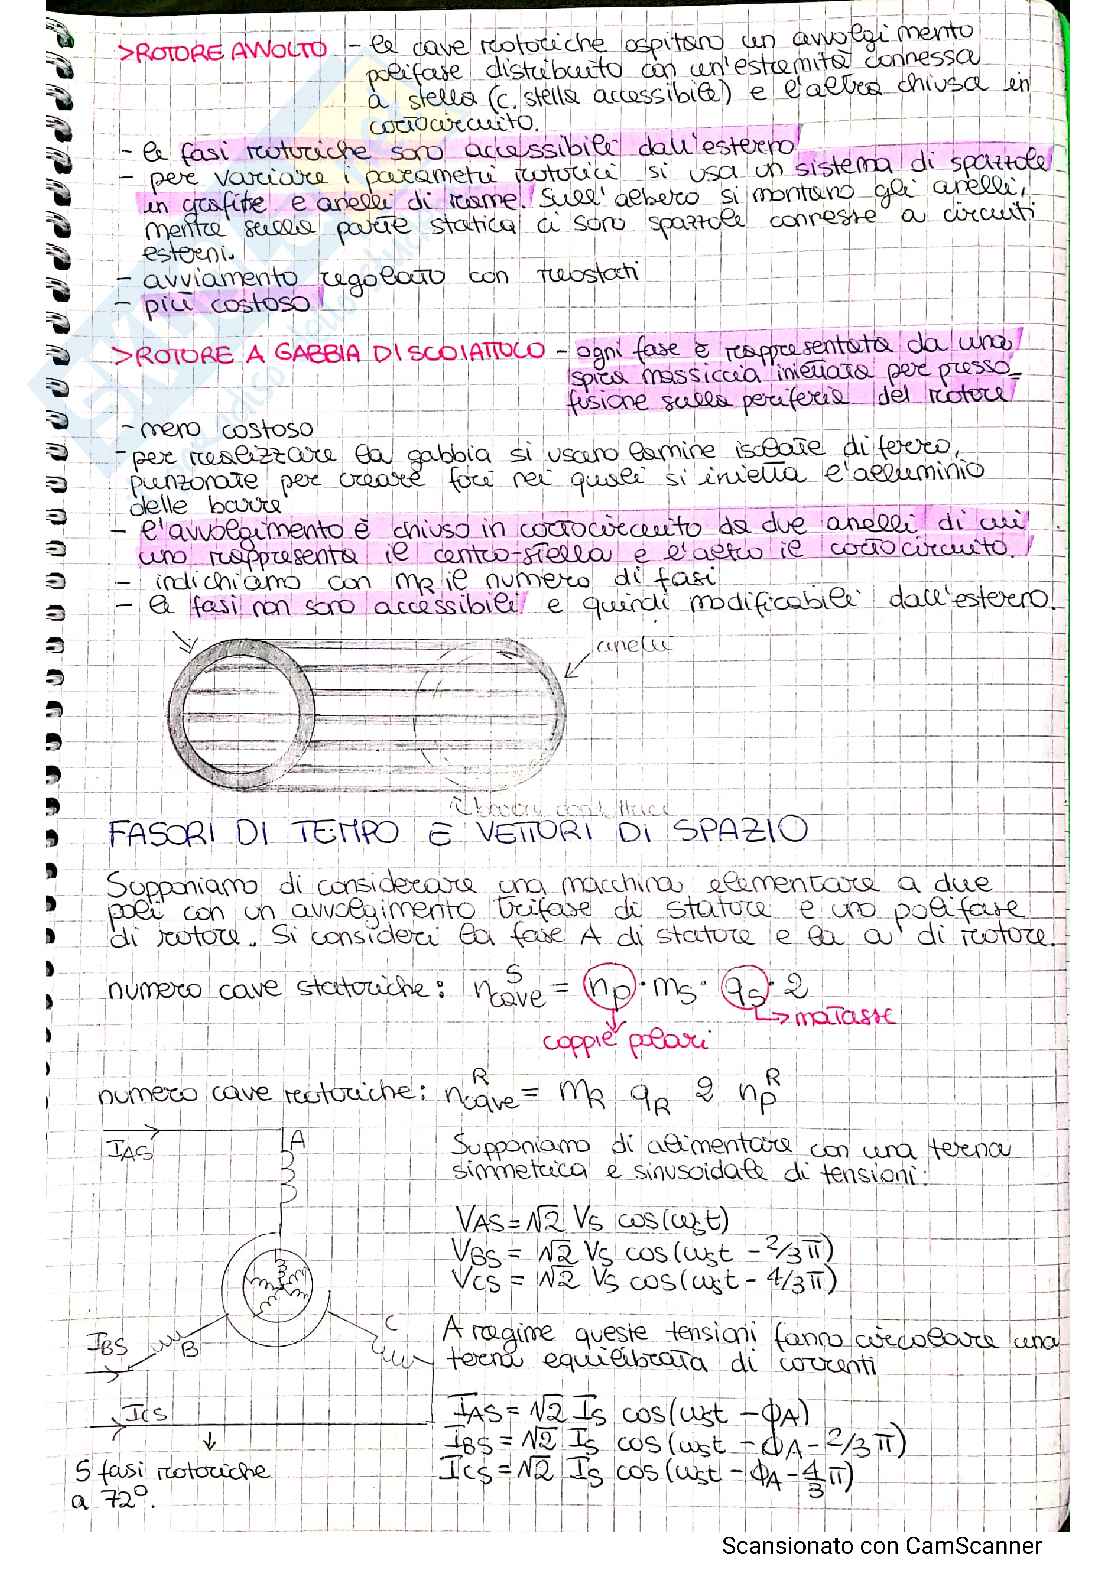 >ROTORE AVVOLTO - le cave rotoriche ospitano un avvolgimento
polifase distribuito con un'estremità connessa
a stella (c. stella accessibile) e l'altra chiusa in
cortocircuito.
- le fasi rotoriche sono accessibili dall'esterno
- per variare i parametri rotorici si usa un sistema di spazzole
in grafite e anelli di rame. Sull'albero si montano gli anelli,
mentre sulla parte statica ci sono spazzole connesse a circuiti
esterni.
- avviamento regolato con reostati
- più costoso
>ROTORE A GABBIA DI SCOIATTOLO - ogni fase è rappresentata da una
spira massiccia iniettata per presso-
fusione sulla periferia del rotore
- meno costoso
- per realizzare la gabbia si usano lamine isolate di ferro,
punzonate per creare fori nei quali si inietta l'alluminio
delle barre
- l'avvolgimento è chiuso in cortocircuito da due anelli di cui
uno rappresenta il centro-stella e l'altro il cortocircuito.
- indichiamo con mR il numero di fasi
- le fasi non sono accessibili e quindi modificabili dall'esterno.
anelli
FASORI DI TEMPO E VETTORI DI SPAZIO
Supponiamo di considerare una macchina elementare a due
poli con un avvolgimento trifase di statore e uno polifase
di rotore. Si consideri la fase A di statore e la a' di rotore.
numero cave statoriche: n^S_cave = np · mS · qS · 2
matasse
coppie polari
numero cave rotoriche: n^R_cave = mR qR 2 n^R_p
IAS
A
Supponiamo di alimentare con una terna
simmetrica e sinusoidale di tensioni:
VAS = √2 VS cos(ωst)
VBS = √2 VS cos(ωst - 2/3π)
VCS = √2 VS cos(ωst - 4/3π)
IBS
B
C
A regime queste tensioni fanno circolare una
terna equilibrata di correnti
ICS
IAS = √2 IS cos(ωst - ϕA)
IBS = √2 IS cos(ωst - ϕA - 2/3π)
ICS = √2 IS cos(ωst - ϕA - 4/3 π)
5 fasi rotoriche
a 72°.
Scansionato con CamScanner